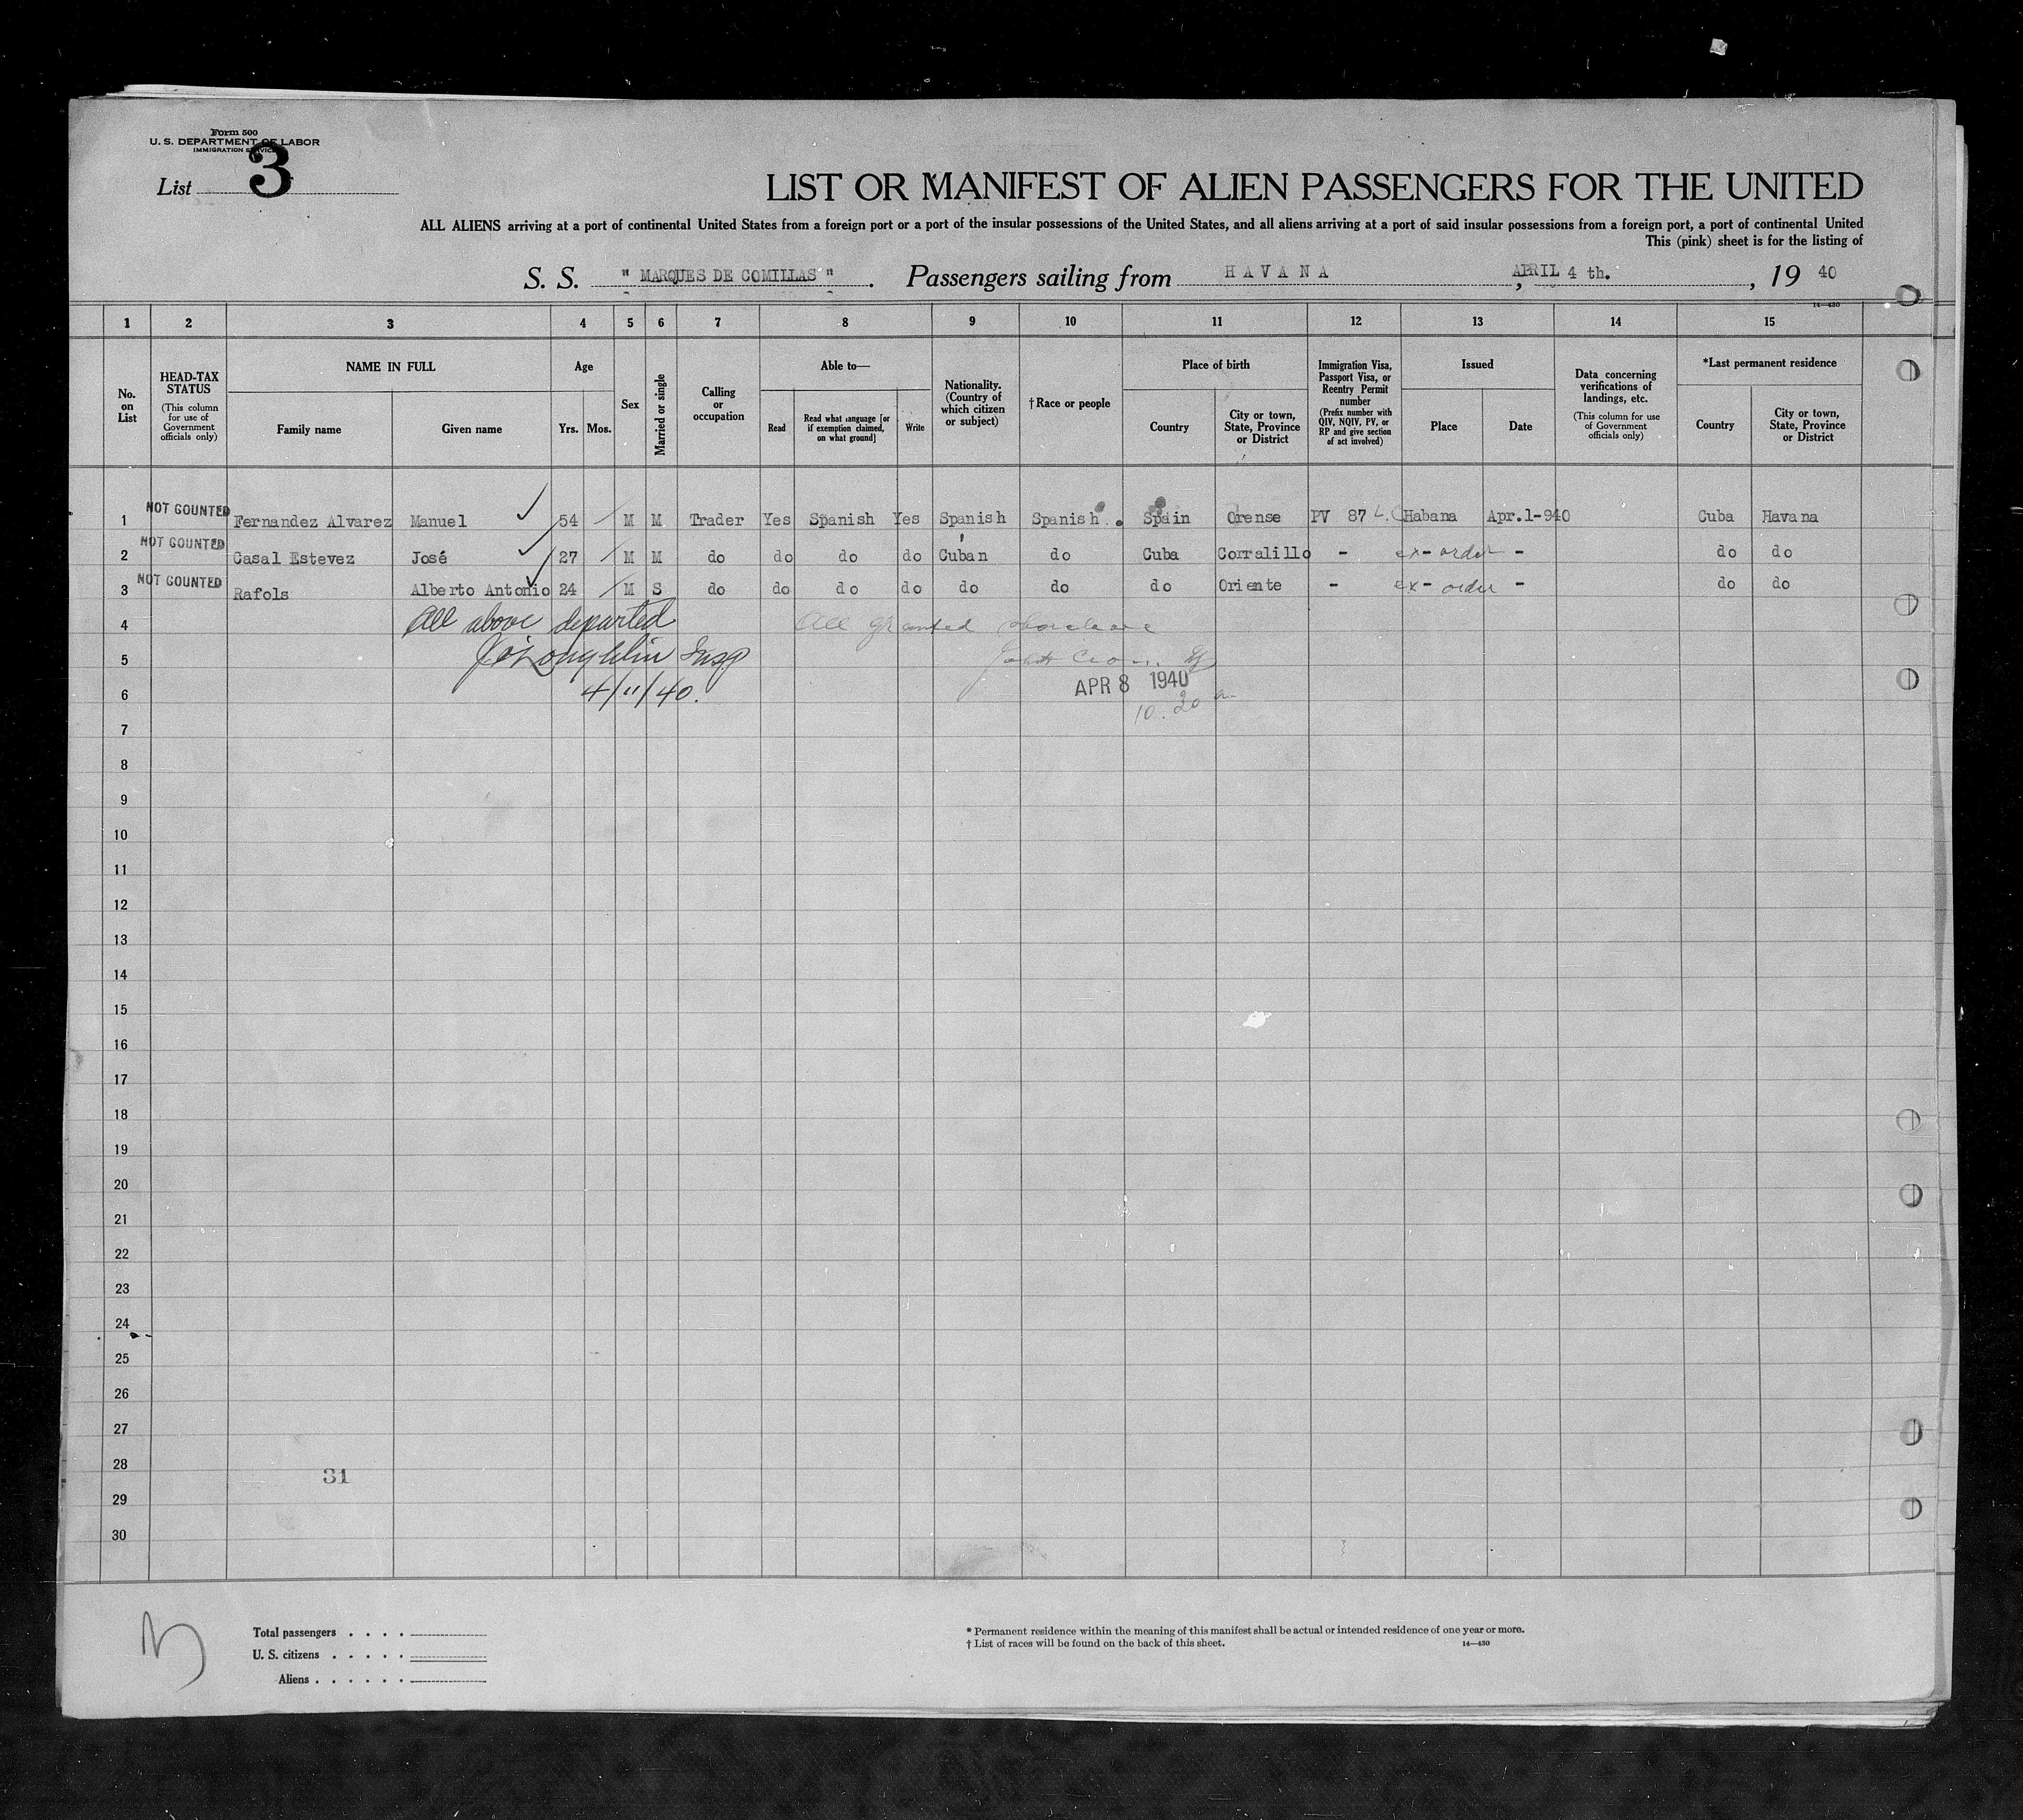 Form 500
U. S. DEPARTMENT OF LABOR
IMMIGRATION SERVICE
List 3
LIST OR MANIFEST OF ALIEN PASSENGERS FOR THE UNITED
ALL ALIENS arriving at a port of continental United States from a foreign port or a port of the insular possessions of the United States, and all aliens arriving at a port of said insular possessions from a foreign port, a port of continental United
This (pink) sheet is for the listing of
S. S. " MARQUES DE COMILLAS ". Passengers sailing from HAVANA, APRIL 4 th., 19 40
14—430
1 2 3 4 5 6 7 8 9 10 11 12 13 14 15
No. on List
HEAD-TAX STATUS
(This column for use of Government officials only)
NAME IN FULL
Family name Given name
Age
Yrs. Mos.
Sex
Married or single
Calling or occupation
Able to—
Read
Read what language [or if exemption claimed, on what ground]
Write
Nationality. (Country of which citizen or subject)
† Race or people
Place of birth
Country
City or town, State, Province or District
Immigration Visa, Passport Visa, or Reentry Permit number
(Prefix number with QIV, NQIV, PV, or RP and give section of act involved)
Issued
Place Date
Data concerning verifications of landings, etc.
(This column for use of Government officials only)
*Last permanent residence
Country
City or town, State, Province or District
1 NOT COUNTED Fernandez Alvarez Manuel 54 M M Trader Yes Spanish Yes Spanish Spanish. Spain Orense PV 87 Habana Apr.1-940 Cuba Havana
2 NOT COUNTED Casal Estevez José 27 M M do do do do Cuban do Cuba Corralillo - ex-order - do do
3 NOT COUNTED Rafols Alberto Antonio 24 M S do do do do do do do Oriente - ex-order - do do
4 All above departed All granted
5 Insp
6 4/11/40. APR 8 1940
10.20 a
7
8
9
10
11
12
13
14
15
16
17
18
19
20
21
22
23
24
25
26
27
28
31
29
30
Total passengers . . . .
U. S. citizens . . . . .
Aliens . . . . . .
* Permanent residence within the meaning of this manifest shall be actual or intended residence of one year or more.
† List of races will be found on the back of this sheet.
14—430